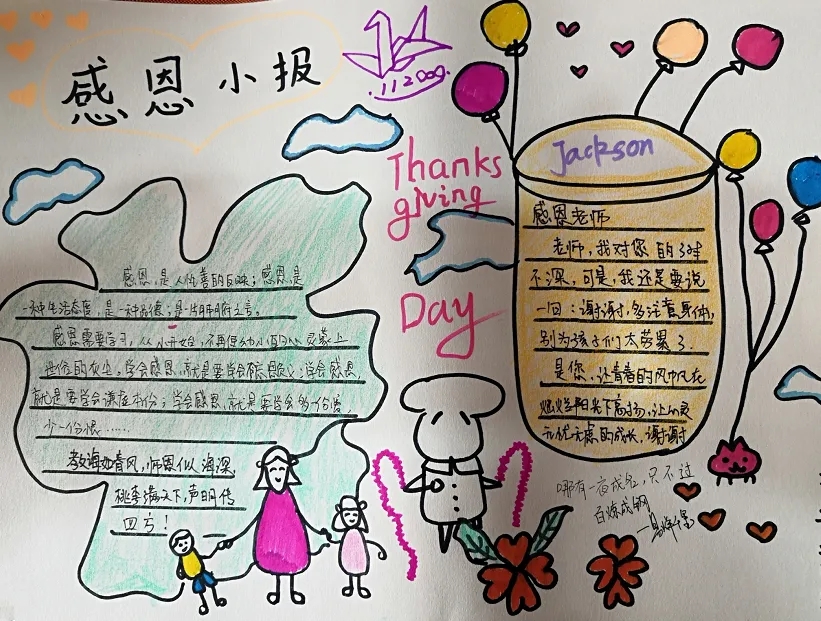 感恩小报
.112000.
Thanks
giving
Day
Jackson
感恩老师
老师，我对您的了解
不深，可是，我还是要说
一回：谢谢谢，多注意身体，
别为孩子们太劳累了.
是您，让青春的风帆在
阳光下高扬，让心灵
无忧无虑的成长，谢谢
感恩，是人仇善的反映；感恩，是
一种生活态度，是一种品德；是一片肺腑之言。
感恩需要学习，从小开始，不再使幼小的心灵蒙上
世俗的灰尘。学会感恩，就是要学会；学会感恩，
就是要学会谦虚；学会感恩，就是要学会多一份
少一份恨……
教诲如春风，师恩似海深，
桃李满天下，声明传
四方！
哪有一夜成名，只不过
百炼成钢